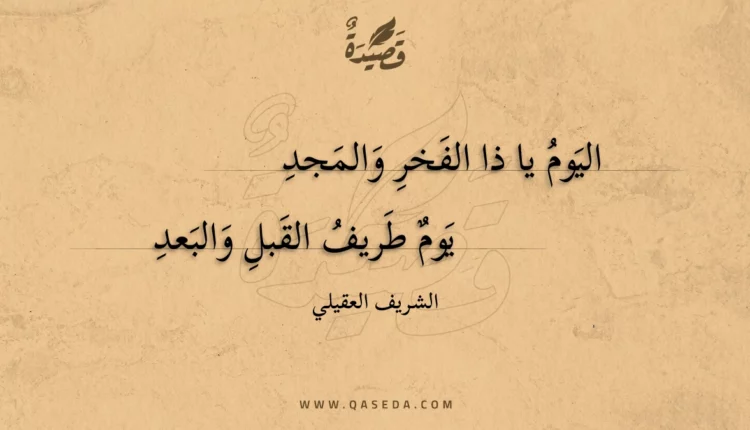 قَصِيدَةٌ
اليَومُ يا ذا الفَخرِ وَالمَجدِ
يَومٌ طَريفُ القَبلِ وَالبَعدِ
الشريف العقيلي
WWW.QASEDA.COM